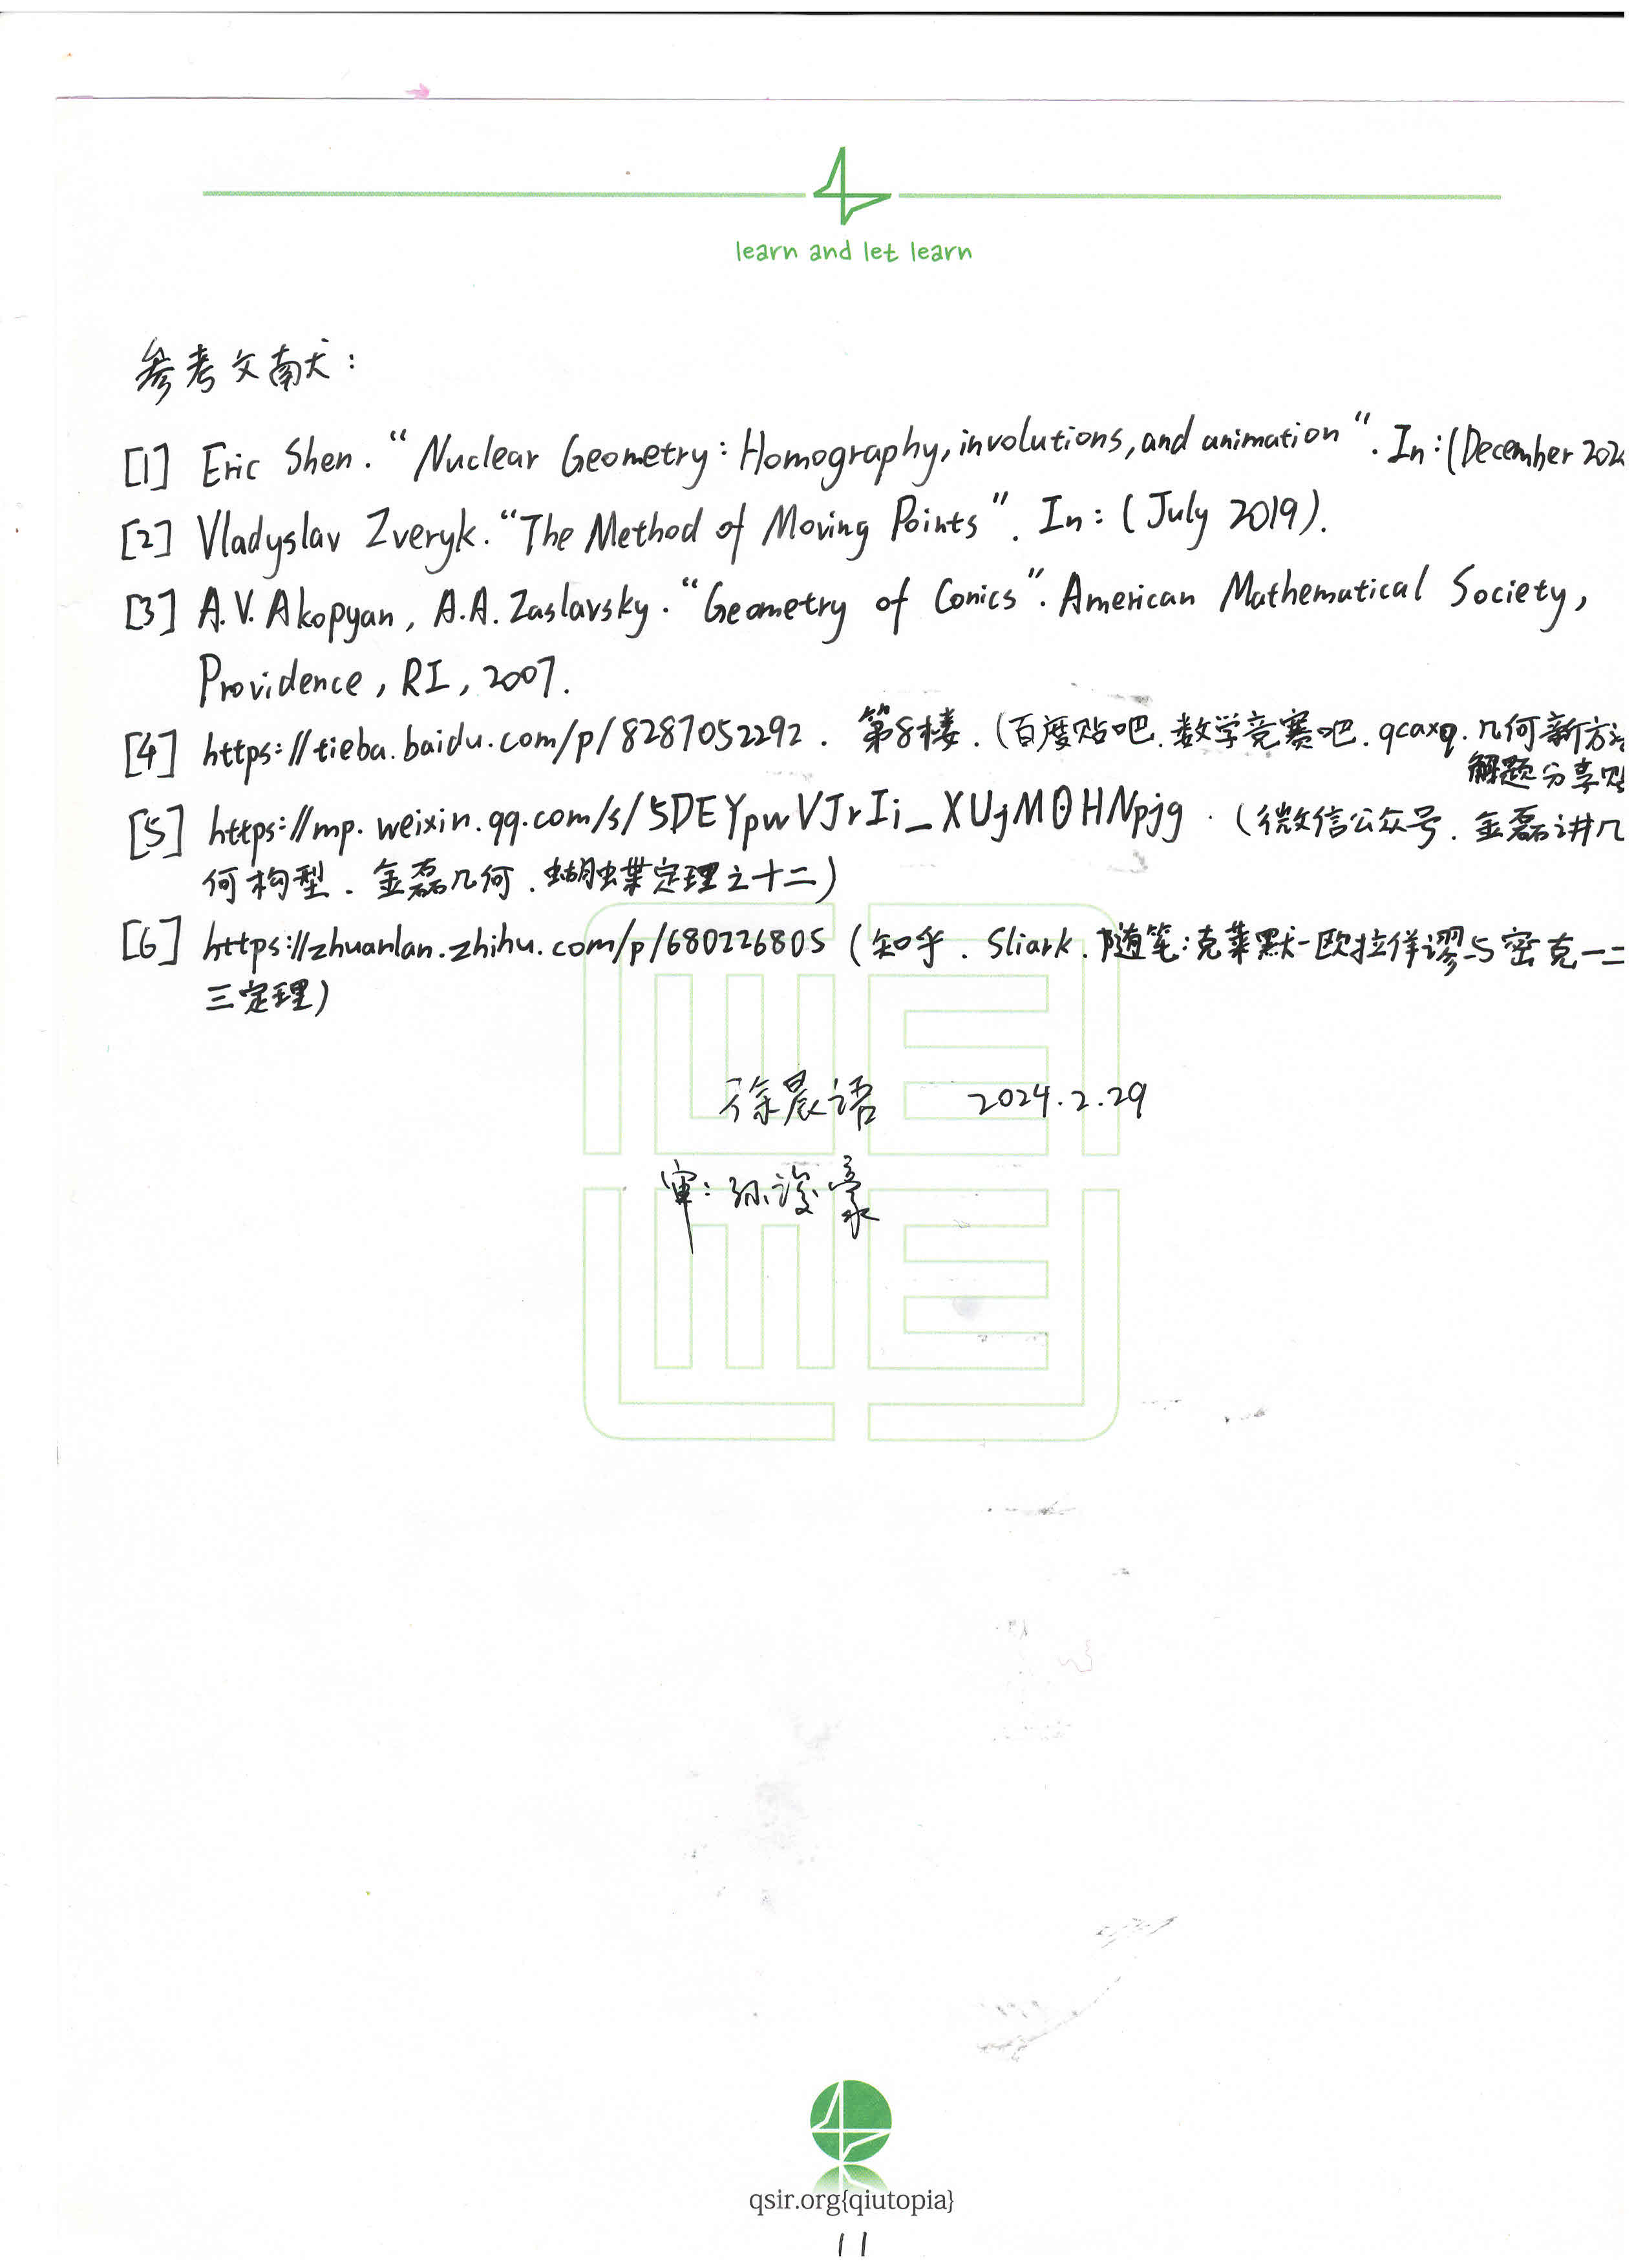 learn and let learn
参考文献:
[1] Eric Shen. “Nuclear Geometry: Homography, involutions, and animation”. In: (December 202
[2] Vladyslav Zveryk. “The Method of Moving Points”. In: (July 2019).
[3] A.V. Akopyan, A.A. Zaslavsky. “Geometry of Conics”. American Mathematical Society,
Providence, RI, 2007.
[4] https://tieba.baidu.com/p/8287052292. 第8楼. (百度贴吧. 数学竞赛吧. qcaxq. 几何新方法
解题分享贴
[5] https://mp.weixin.qq.com/s/5DEYpwVJrIi_XUgM0HNpjg. (微信公众号. 金磊讲几
何构型. 金磊几何. 蝴蝶定理之十二)
[6] https://zhuanlan.zhihu.com/p/680226805 (知乎. Sliark. 随笔:克莱默-欧拉佯谬与密克一二
三定理)
徐晨语 2024.2.29
审:孙浚豪
qsir.org{qiutopia}
11